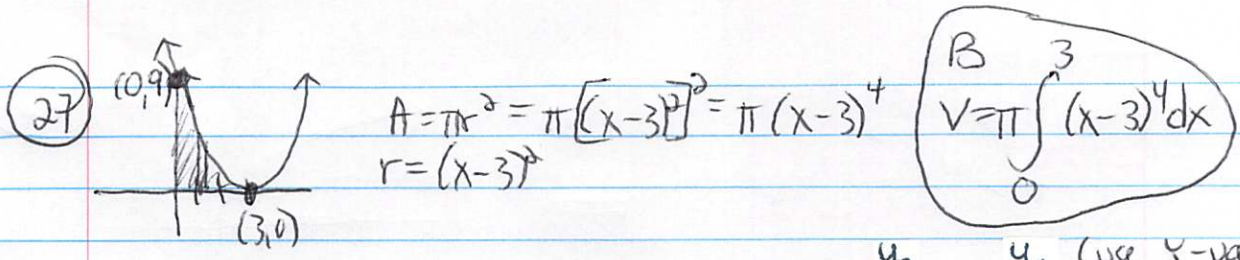 27
(0,9)
(3,0)
A = πr² = π[(x-3)²]² = π(x-3)⁴
r = (x-3)²
B
V = π∫₀³ (x-3)⁴dx
(use Y-va